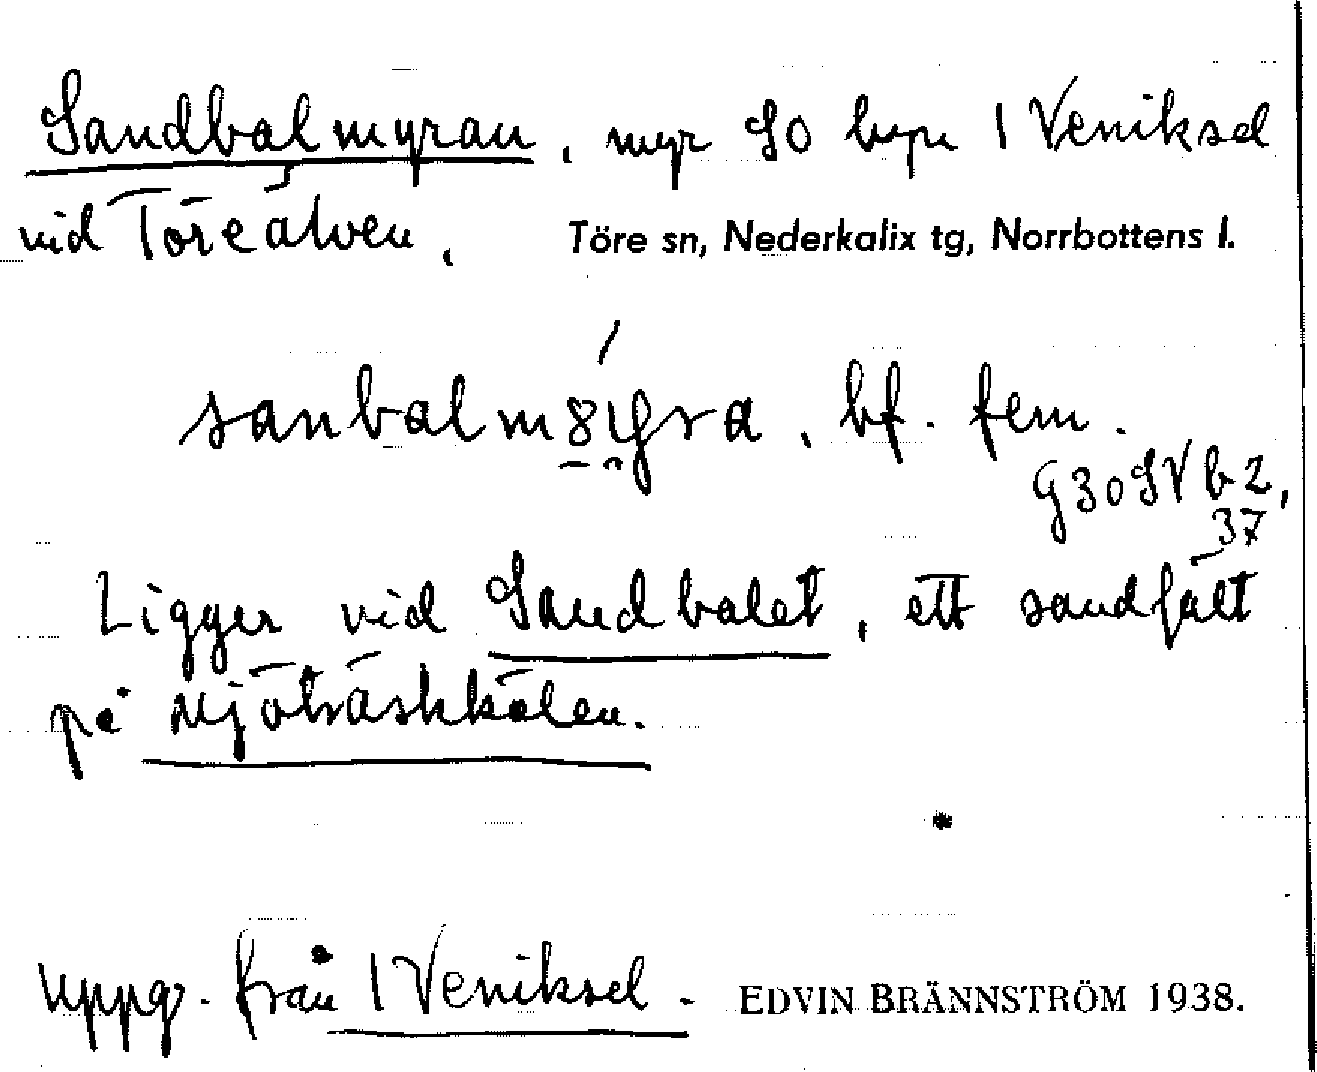 Sandbalmyran, myr SO byn 1 Veniksel
vid Töreälven. Töre sn, Nederkalix tg, Norrbottens l.
bf. fem.
G30SV b 2,
37
Ligger vid Sandbalet, ett sandfält
på Mjöträskkälen.
uppg. från 1 Veniksel. EDVIN BRÄNNSTRÖM 1938.